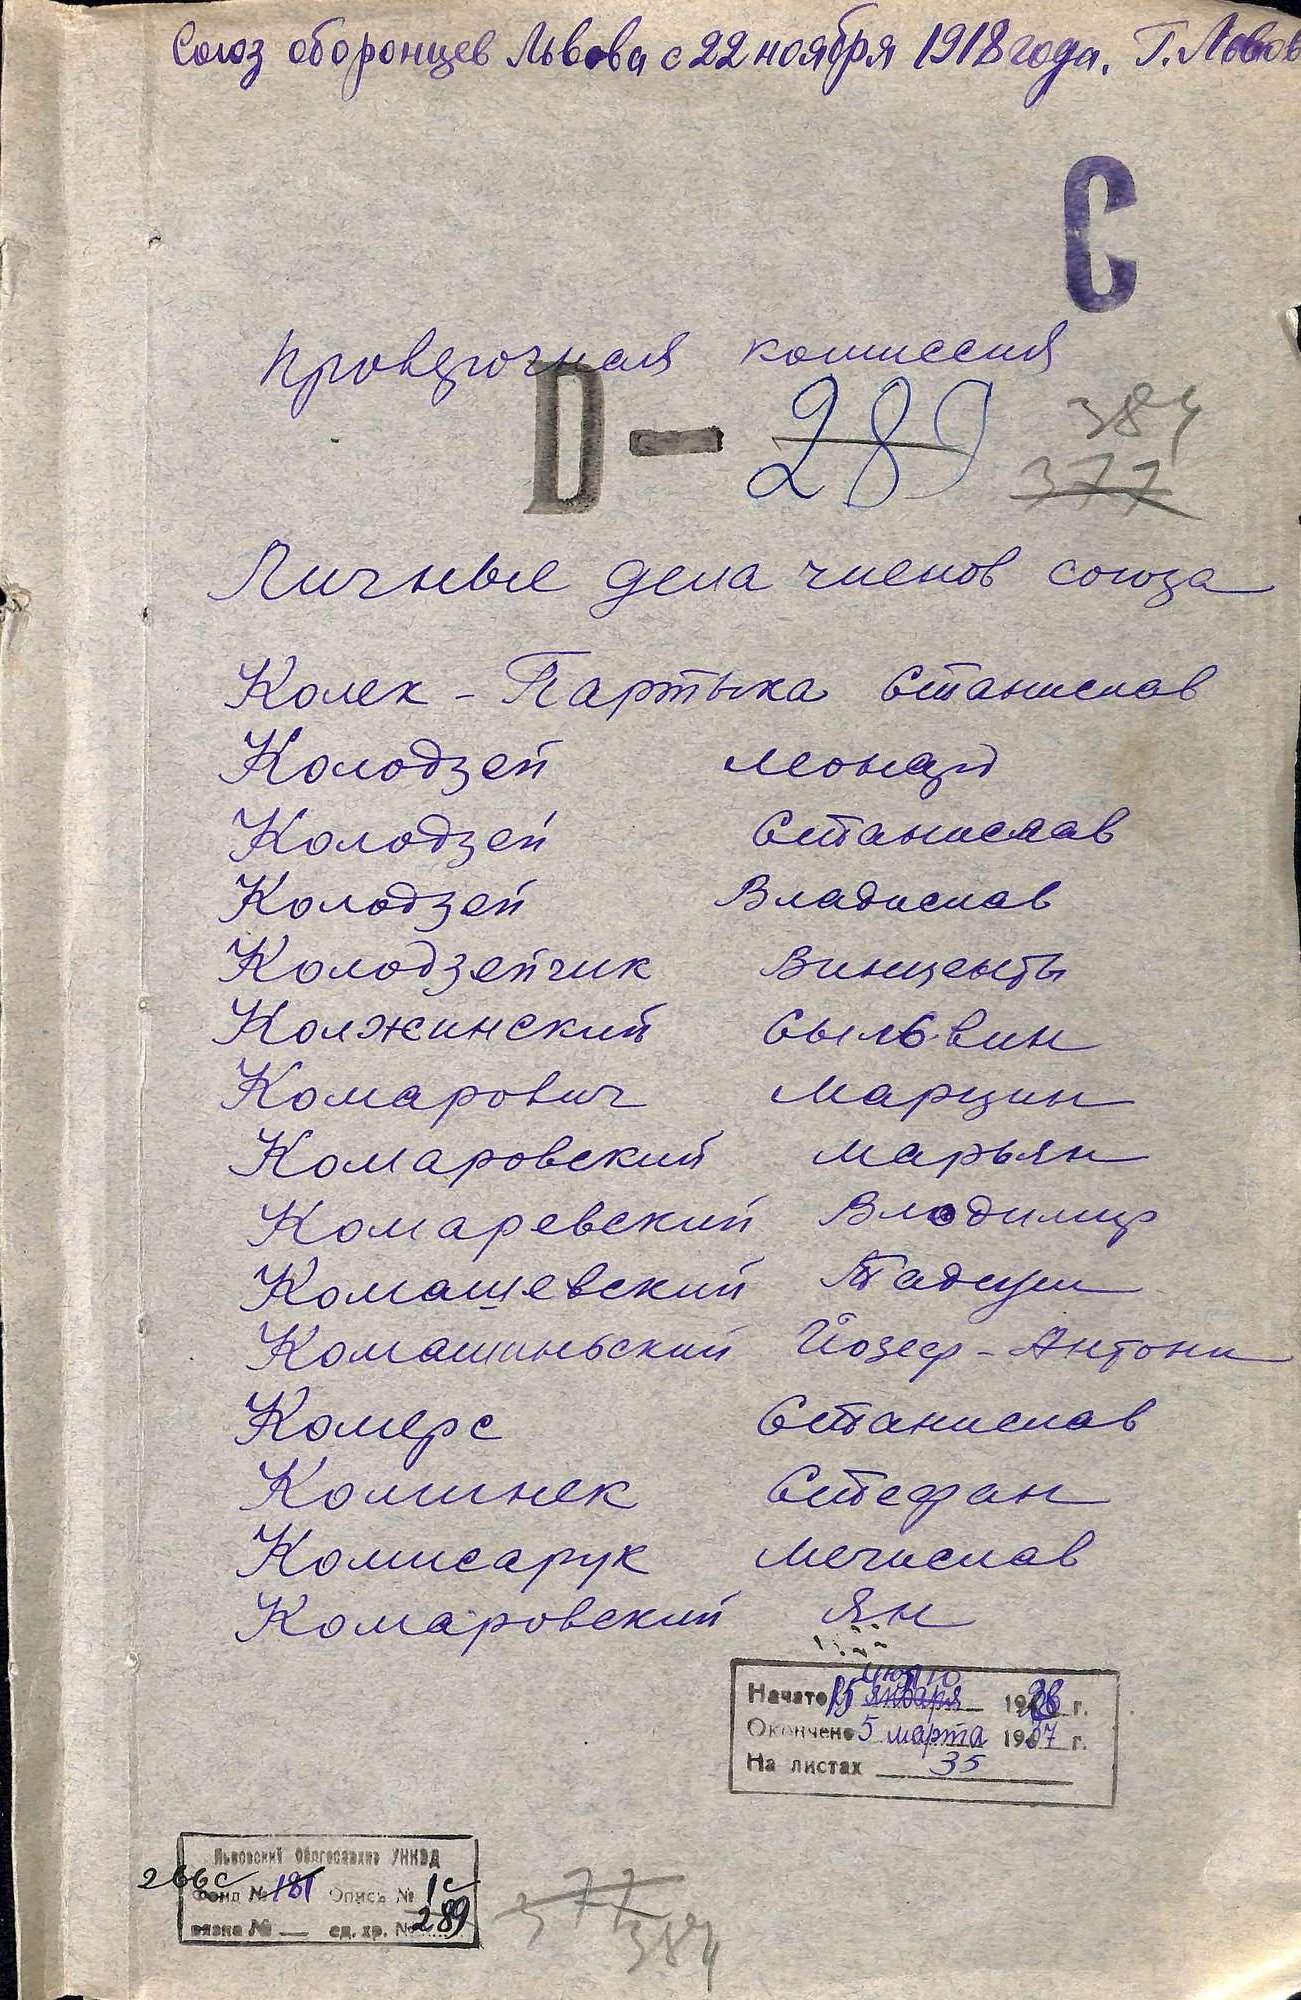 Союз оборонцев Львова с 22 ноября 1918 года. Г. Львов
С
Проверочная комиссия
D — 289 384
377
Личные дела членов союза
Колек - Партыка Станислав
Колодзей Леонард
Колодзей Станислав
Колодзей Владислав
Колодзейчик Винценты
Колжинский Сыльвин
Комарович Марцин
Комаровский Марьян
Комаревский Влодимир
Комашевский Тадеуш
Комашиньский Йозеф - Антони
Комерс Станислав
Коминек Стефан
Комисарук Мечислав
Комаровский Ян
Начато 15 января 19 г.
Окончено 5 марта 1937 г.
На листах 35
Львовский Облгосархив УНКВД
266с Фонд № 181 Опись № 1с
вязка № — ед. хр. № 289
377
384